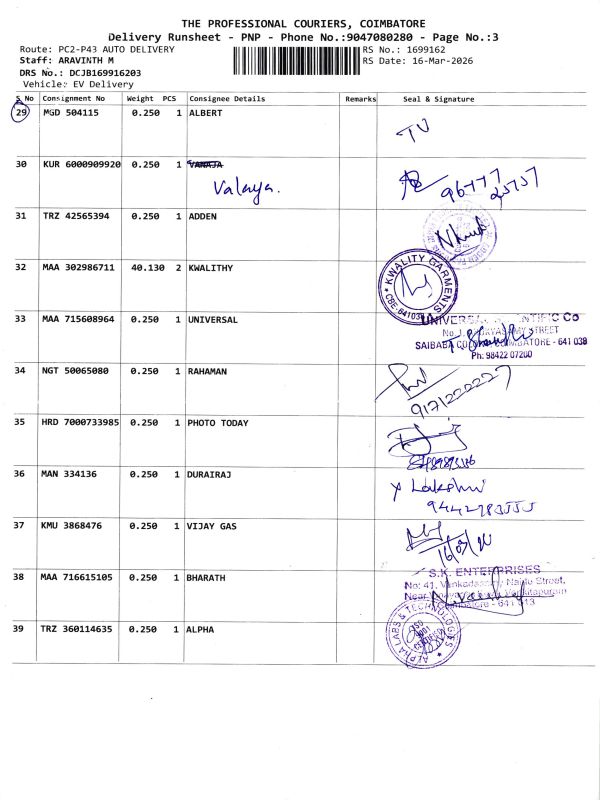 THE PROFESSIONAL COURIERS, COIMBATORE
Delivery Runsheet - PNP - Phone No.:9047080280 - Page No.:3
Route: PC2-P43 AUTO DELIVERY
RS No.: 1699162
Staff: ARAVINTH M
RS Date: 16-Mar-2026
DRS No.: DCJB169916203
Vehicle: EV Delivery
S.No Consignment No Weight PCS Consignee Details Remarks Seal & Signature
29 MGD 504115 0.250 1 ALBERT
TV
30 KUR 6000909920 0.250 1 VANAJA
Valaya.
96777
25757
31 TRZ 42565394 0.250 1 ADDEN
32 MAA 302986711 40.130 2 KWALITHY
KWALITY GARMENTS
CBE-641038
33 MAA 715608964 0.250 1 UNIVERSAL
UNIVERSAL SCIENTIFIC Co
STREET
SAIBABA COLONY, COIMBATORE - 641 038
Ph: 98422 07200
34 NGT 50065080 0.250 1 RAHAMAN
9171222227
35 HRD 7000733985 0.250 1 PHOTO TODAY
36 MAN 334136 0.250 1 DURAIRAJ
Lakshmi
37 KMU 3868476 0.250 1 VIJAY GAS
38 MAA 716615105 0.250 1 BHARATH
S.K. ENTERPRISES
No: 41, Venkadasamy Naidu Street,
Near Venkitapuram
Coimbatore - 641 013
39 TRZ 360114635 0.250 1 ALPHA
ALPHA LABS & TECHNOLOGIES
ISO 9001
CERTIFIED